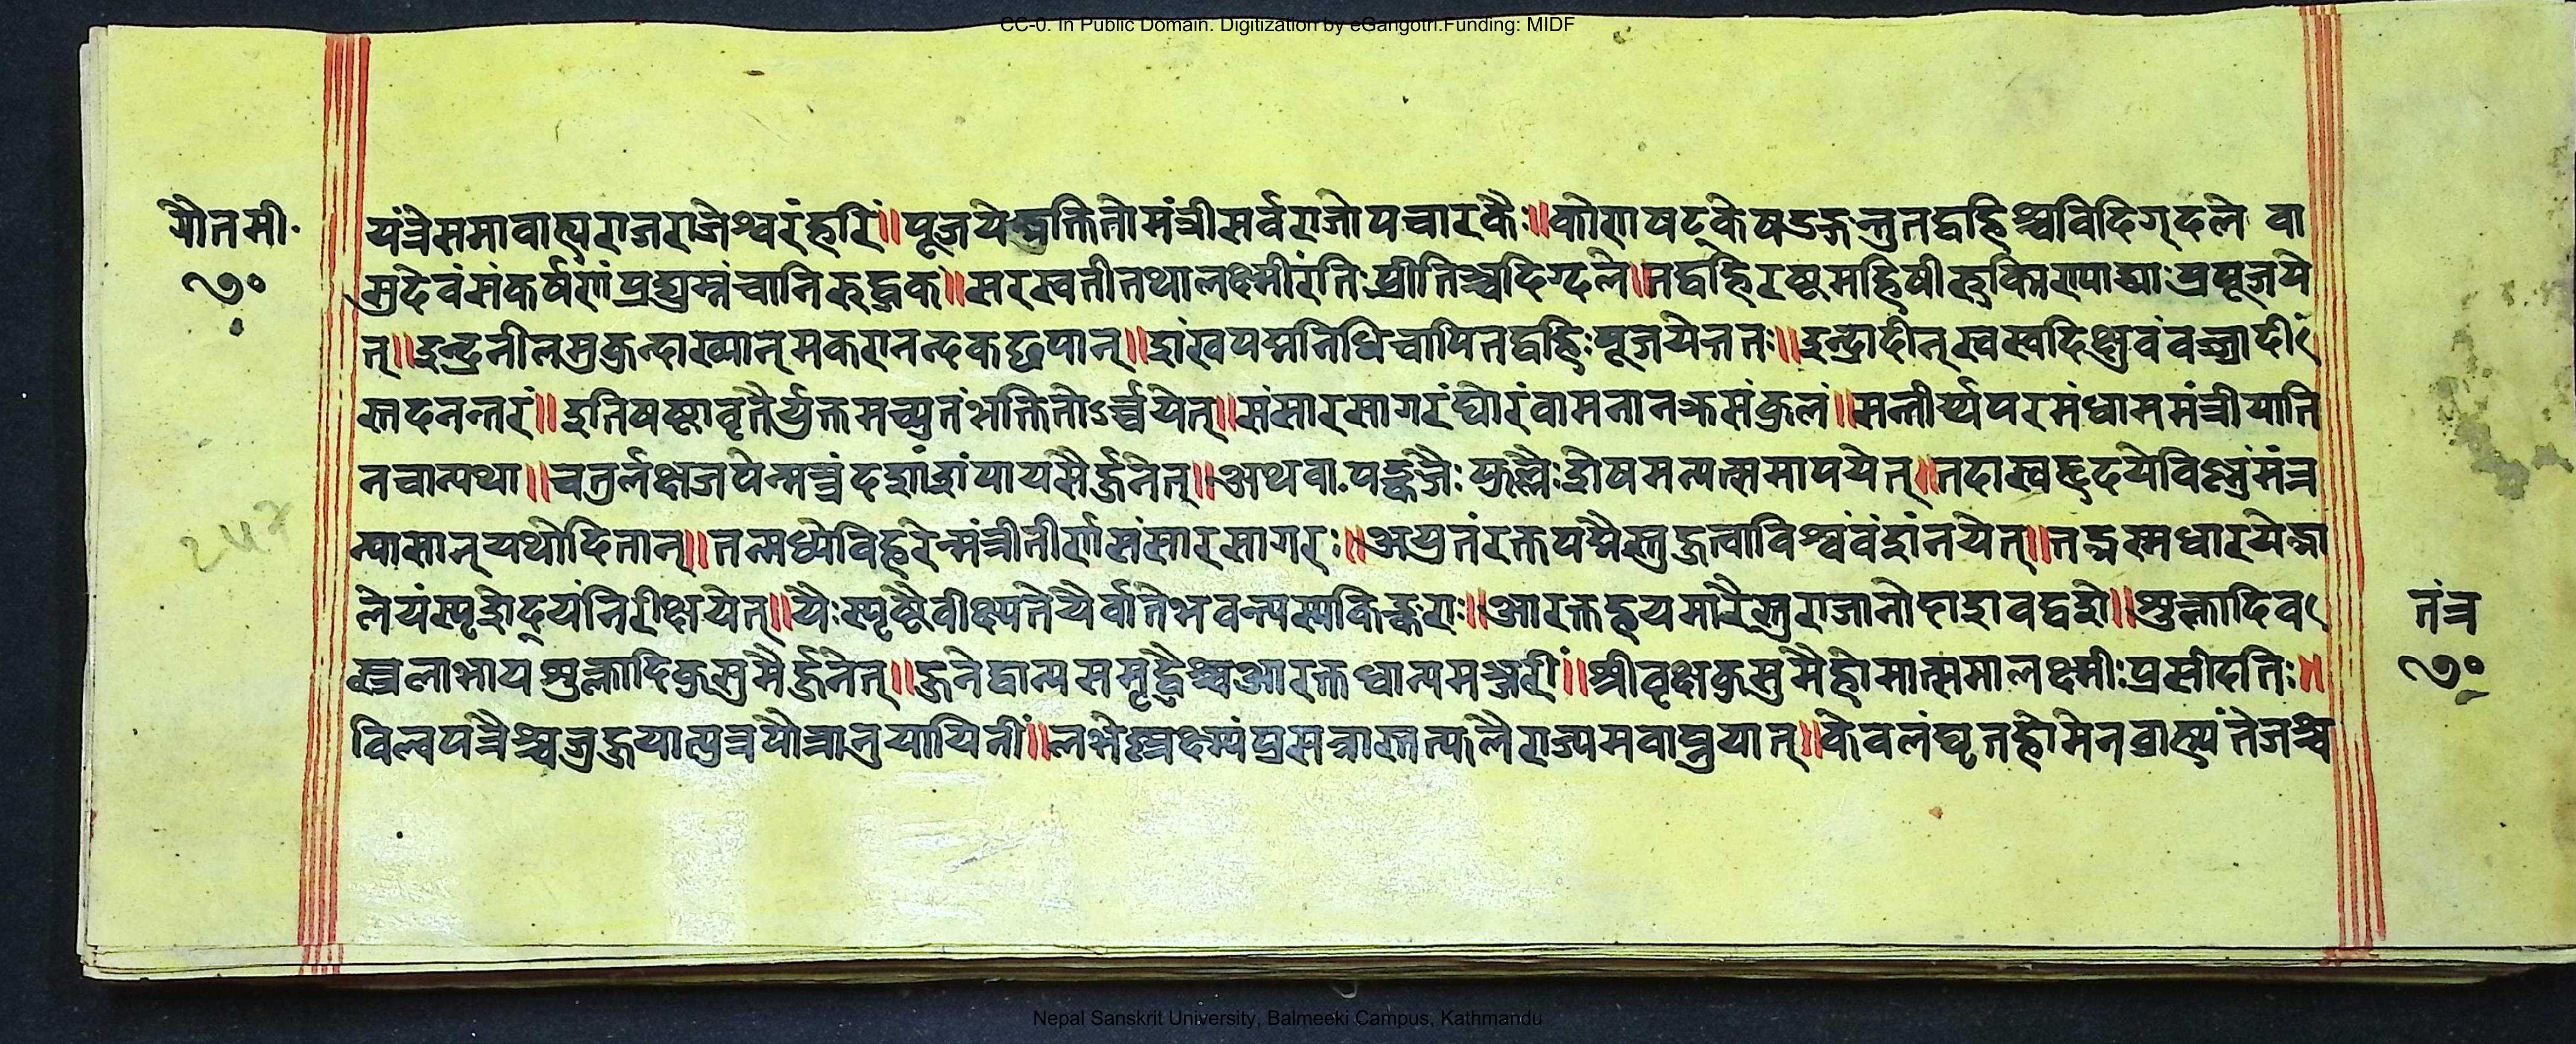 CC-0. In Public Domain. Digitization by eGangotri.Funding: MIDF
गौतमी॰
७०
यंत्रेसमावाह्यराजराजेश्वरंहरिं॥पूजयेद्भक्तितोमंत्रीसर्वराजोपचारकैः॥कोणषट्केषडङ्गन्तुतद्वहिश्चविदिग्दले वा
सुदेवंसंकर्षणंप्रद्युम्नंचानिरुद्धक॥सरस्वतीतथालक्ष्मीरतिःप्रीतिञ्चदिग्दले॥तद्वहिरष्टमहिषीरुक्मिण्याद्याःप्रपूजये
त्॥इन्द्रनीलमुकुन्दाख्यान्मकरानन्दकछपान्॥शंखपद्मनिधिचापितद्वहिःपूजयेत्ततः॥इन्द्रादीन्स्वस्वदिक्षुवंवज्रादीं
स्तदनन्तरं॥इतिषष्टावृतैर्युक्तमच्युतंभक्तितोऽर्च्चयेत्॥संसारसागरंघोरंवामनानक्रसंकुलं॥सन्तीर्य्यपरमंधाममंत्रीयाति
नचान्यथा॥चतुर्लक्षजपेन्मन्त्रंदशांशंपायसैर्ज्जुनेत्॥अथवा.पङ्कजैःफुल्लैःशेषमन्यत्समापयेत्॥तदास्वहृदयेविष्णुंमंत्र
न्यासान्यथोदितान्॥तन्मध्येविहरेन्मंत्रीतीर्णसंसारसागरः॥अयुतंरक्तपद्मैस्तुजुत्वाविश्वंवंशंनयेत्॥तद्भस्मधारयेद्भा
लेयंस्पृशेद्यंनिरीक्षयेत्॥यैःस्पृष्टैवीक्ष्यतेयैर्वातेभवन्त्यस्यकिङ्कराः॥आरक्तहयमारैस्तुराजानोदाशवद्वशे॥शुक्लादिव
स्त्रलाभायशुक्लादिकुसुमैर्ज्जुनेत्॥जुनेद्वान्यसमृद्वैश्चआरक्तधान्यमञ्जरीं॥श्रीवृक्षकुसुमैर्होमात्समालक्ष्मीःप्रसीदतिः॥
विल्वपत्रैश्चजुजुयात्पुत्रपौत्रानुयायिनीं॥लभेत्प्रसन्नास्तत्फलैराज्यमवाप्नुयात्॥केवलंघृतहोमेनब्राह्म्यंतेजश्च
तंत्र
७०
Nepal Sanskrit University, Balmeeki Campus, Kathmandu